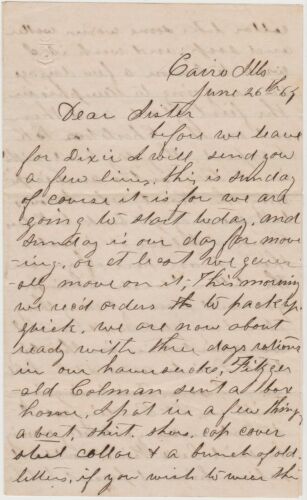 Cairo Ills
June 26th 64
Dear Sister
before we leave
for Dixie I will send you
a few lines, this is sunday
of course it is for we are
going to start today, and
sunday is our day for mov
-ing, or at least we gener-
ally move on it, This morning
we recd orders to pack up
quick, we are now about
ready with three days rations
in our haversacks, Fitzger-
ald Colman sent a box
home, I put in a few things
a best, shirt, shoes, cap cover
steel collar & a bunch of old
letters, if you wish to wear the